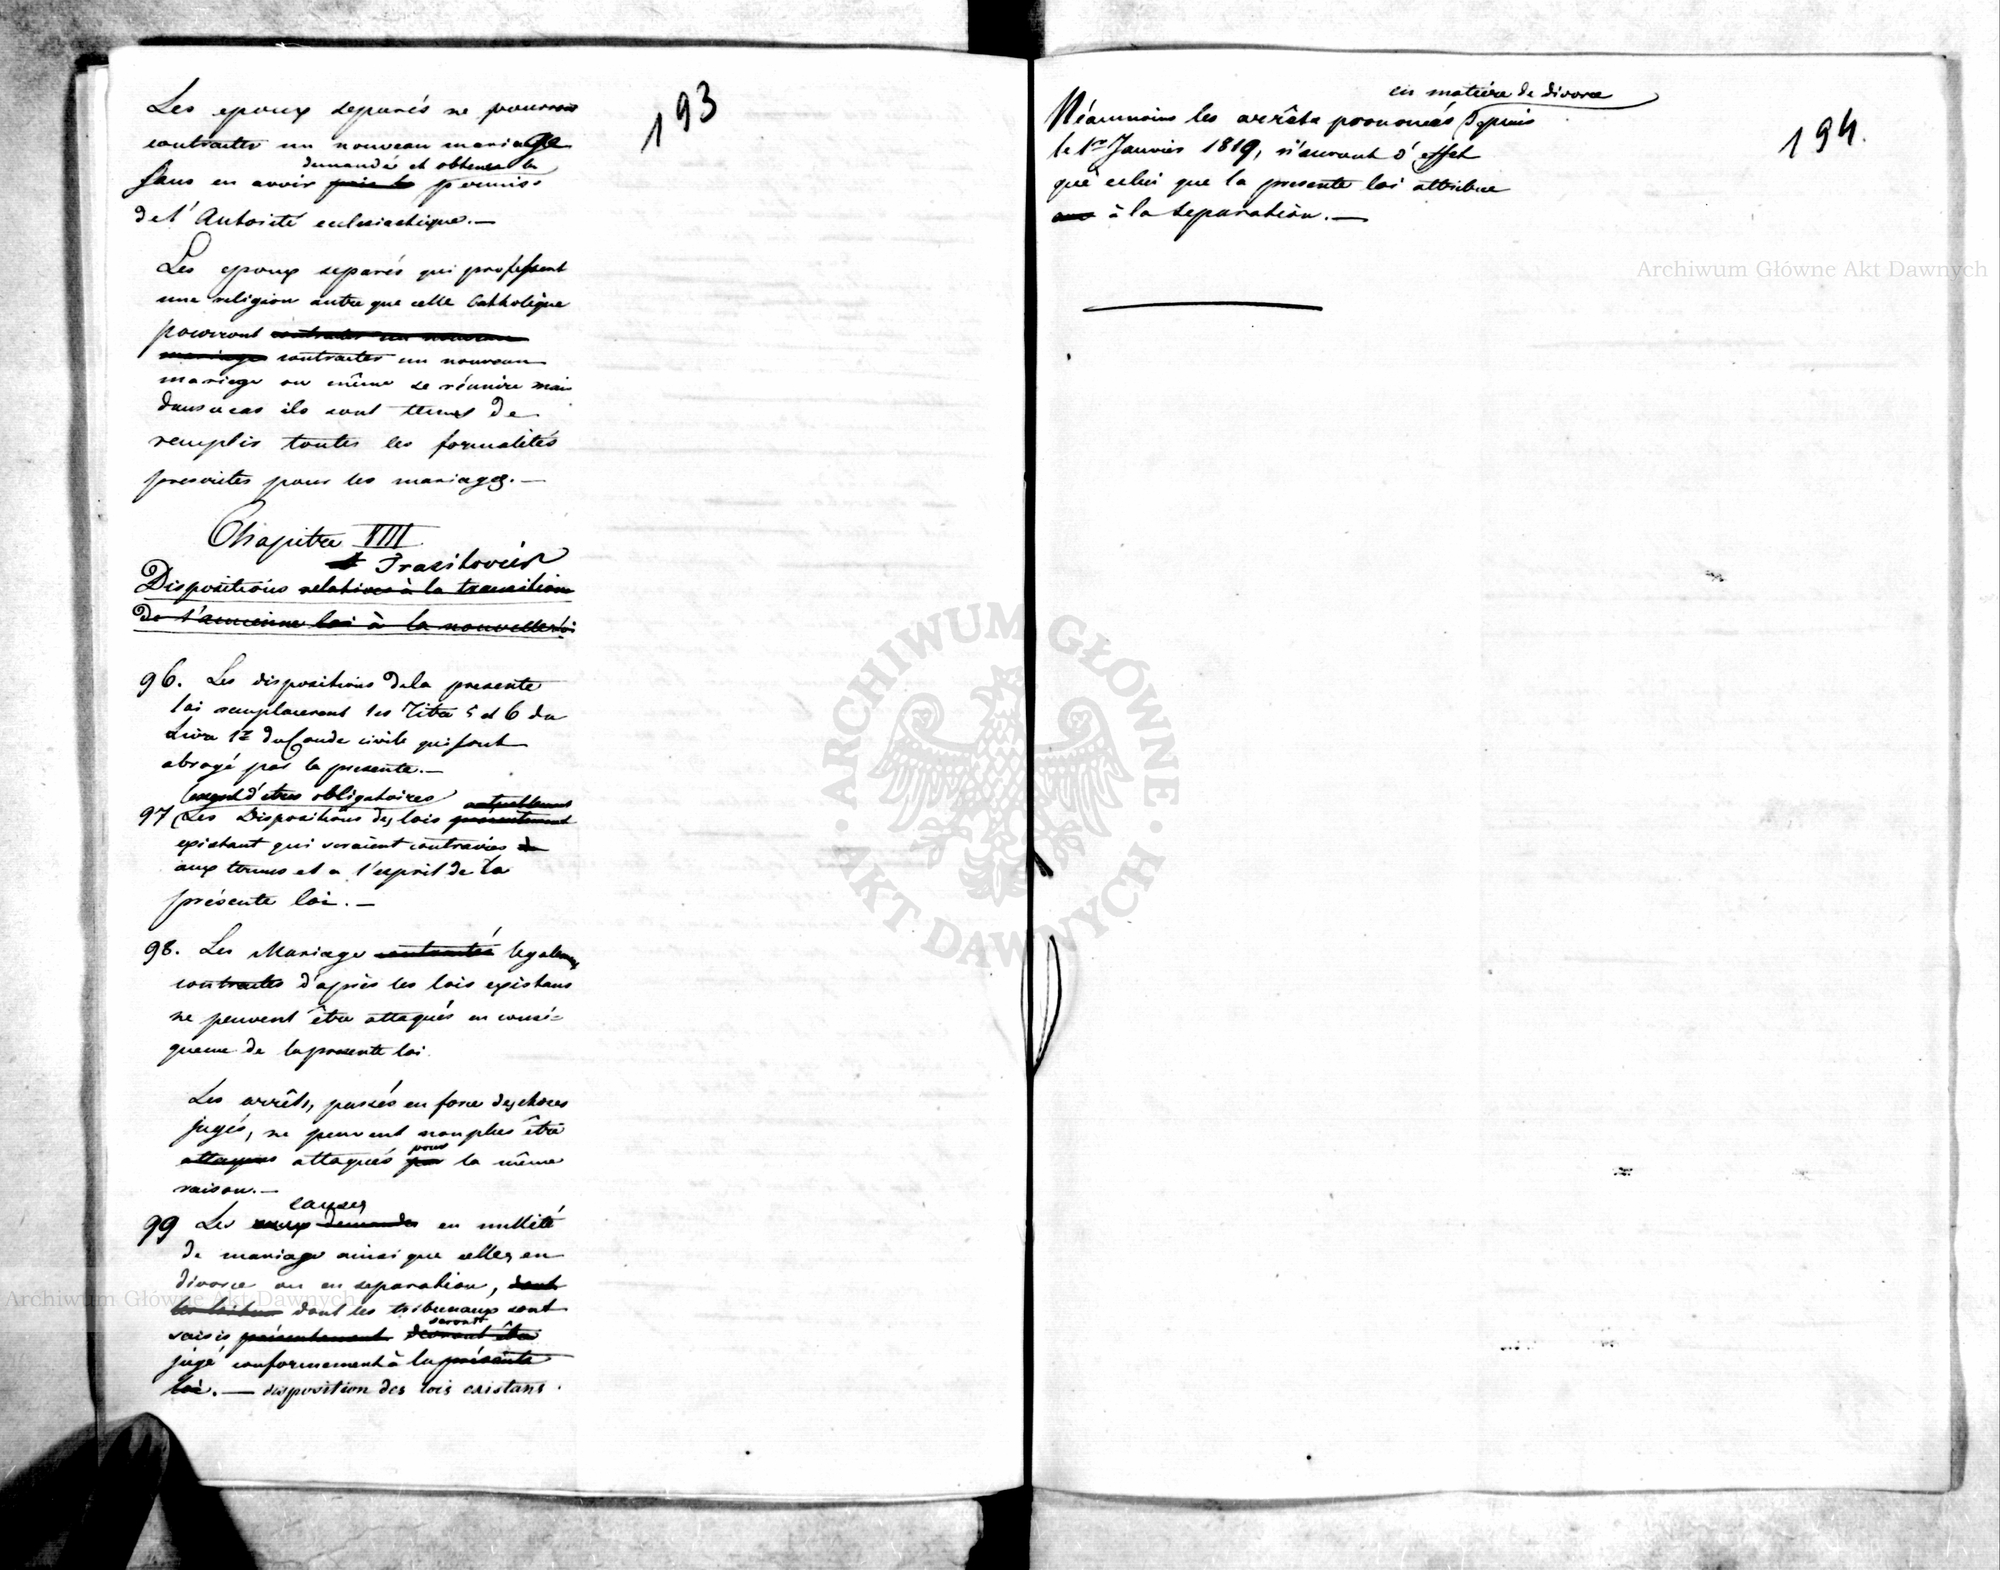 193
Les epoux separés ne pourront
contracter un nouveau mariage
demandée et obtenue la
sans en avoir pris la permis:
de l'Autorité eclesiastique. —
Les epoux separés qui professent
une religion autre que celle Catholique
pourront contracter un nouveau
mariage contracter un nouveau
mariage ou même se réunire mais
dans ce cas ils sont tenus de
remplir toutes les formalités
prescrites pour les mariages. —
Chapitre VIII
Transitovies
Dispositions relatives à la transition
de l'ancienne loi à la nouvelle loi
96. Les dispositions de la presente
loi remplaceront les Titre 5 et 6 du
Livre 1er du Coude civile qui sont
abrogé par la presente. —
cessent d'etres obligatoires actuellement
97 Les Dispositions des lois présentement
existant qui seraient contraires de
aux termes et a l'esprit de la
présente loi. —
98. Les Mariage contractés legalement
contractes d'après les lois existans
ne peuvent être attaqués en consé=
quence de la presente loi
Les arrêts, passés en force des choses
jugés, ne peuvent non plus être
pour
attaques attaqués par la même
raison. —
causes
99 Les demandes en nullité
de mariage ainsi que celles en
divorce ou en separation, dont
les tribun dont les tribunaux sont
seront
saisis présentement devront être
jugé conformement à la présente
loi. — disposition des lois existans.
194.
en matière de divorce
Néanmoins les arrêts prononcés depuis
le 1er Janvier 1819, n'auront d'effet
que celui que la presente loi attribue
à la separation. —
Archiwum Główne Akt Dawnych
Archiwum Główne Akt Dawnych
ARCHIWUM GŁÓWNE
AKT DAWNYCH